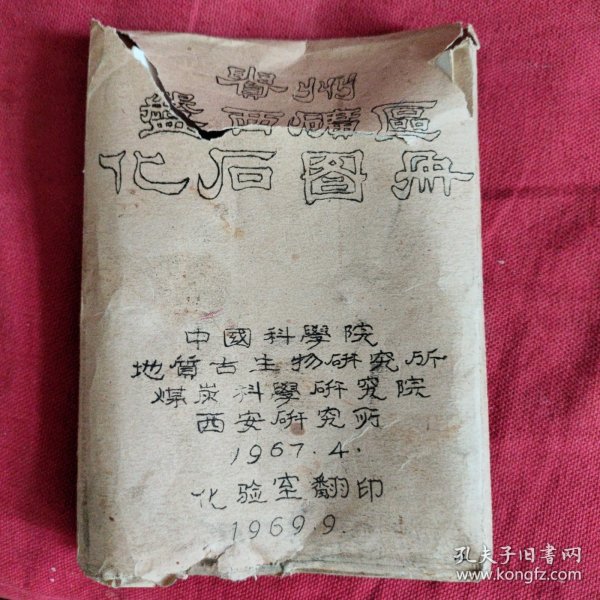 貴州
盤西礦區
化石图册
中國科學院
地質古生物研究所
煤炭科學研究院
西安研究所
1967.4.
化验室翻印
1969.9.
孔夫子旧书网
www.kongfz.com